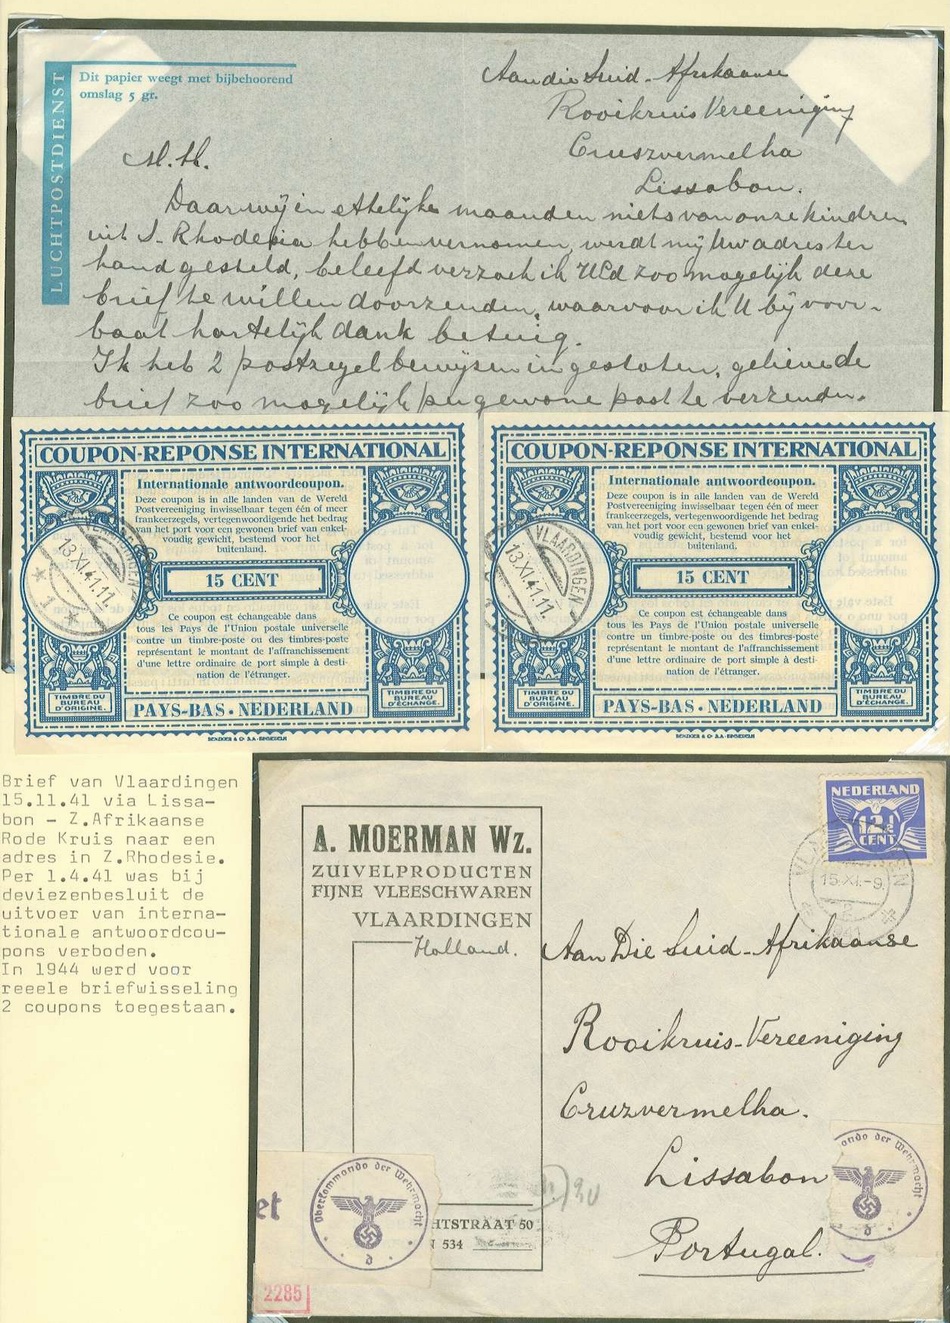 LUCHTPOSTDIENST
Dit papier weegt met bijbehoorend
omslag 5 gr.
Aan die Suid-Afrikaanse
Rooikruis Vereeniging
Cruszvermelha
Lissabon.
M.H.
Daar wij in ettelijke maanden niets van onze kindren
uit S. Rhodesia hebben vernomen, werdt mij Uw adres ter
hand gesteld, beleefd verzoek ik UEd zoo mogelijk deze
brief te willen doorzenden, waarvoor ik U bij voor-
baat hartelijk dank betuig.
Ik heb 2 postzegelbewijsen ingesloten, gelieve de
brief zoo mogelijk per gewone post te verzenden.
COUPON-REPONSE INTERNATIONAL
Internationale antwoordcoupon.
Deze coupon is in alle landen van de Wereld
Postvereeniging inwisselbaar tegen één of meer
frankeerzegels, vertegenwoordigende het bedrag
van het port voor een gewonen brief van enkel-
voudig gewicht, bestemd voor het
buitenland.
15 CENT
Ce coupon est échangeable dans
tous les Pays de l'Union postale universelle
contre un timbre-poste ou des timbres-poste
représentant le montant de l'affranchissement
d'une lettre ordinaire de port simple à desti-
nation de l'étranger.
TIMBRE DU
BUREAU
D'ORIGINE.
PAYS-BAS · NEDERLAND
VLAARDINGEN
13.XI.41.11
1
COUPON-REPONSE INTERNATIONAL
Internationale antwoordcoupon.
Deze coupon is in alle landen van de Wereld
Postvereeniging inwisselbaar tegen één of meer
frankeerzegels, vertegenwoordigende het bedrag
van het port voor een gewonen brief van enkel-
voudig gewicht, bestemd voor het
buitenland.
15 CENT
Ce coupon est échangeable dans
tous les Pays de l'Union postale universelle
contre un timbre-poste ou des timbres-poste
représentant le montant de l'affranchissement
d'une lettre ordinaire de port simple à desti-
nation de l'étranger.
TIMBRE DU
BUREAU
D'ORIGINE.
PAYS-BAS · NEDERLAND
TIMBRE DU
BUREAU
D'ÉCHANGE.
VLAARDINGEN
13.XI.41.11
Brief van Vlaardingen
15.11.41 via Lissa-
bon - Z.Afrikaanse
Rode Kruis naar een
adres in Z.Rhodesie.
Per 1.4.41 was bij
deviezenbesluit de
uitvoer van interna-
tionale antwoordcou-
pons verboden.
In 1944 werd voor
reeele briefwisseling
2 coupons toegestaan.
A. MOERMAN WZ.
ZUIVELPRODUCTEN
FIJNE VLEESCHWAREN
VLAARDINGEN
Holland.
NEDERLAND
12½
CENT
VLAARDINGEN
15.XI.-9
2
1941
Aan Die Suid-Afrikaanse
Rooikruis-Vereeniging
Cruzvermelha.
Lissabon
Portugal.
HTSTRAAT 50
N 534
et
Oberkommando der Wehrmacht
d
ando der Wehrmacht
d
2285